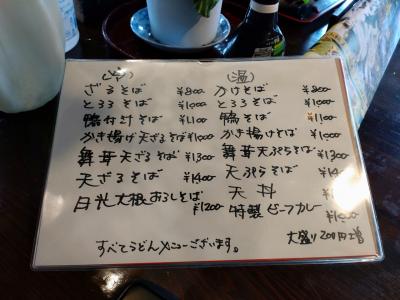 (冷)
ざるそば ¥800
とろろそば ¥1000
鴨付汁そば ¥1100
かき揚げ天ざるそば ¥1000
舞茸天ざるそば ¥1300
天ざるそば ¥1400
日光大根おろしそば ¥1200
(温)
かけそば ¥800
とろろそば ¥1000
鴨そば ¥1100
かき揚げそば ¥1000
舞茸天ぷらそば ¥1300
天ぷらそば ¥1400
天丼
特製ビーフカレー
大盛り200円増
すべてうどんメニューございます。